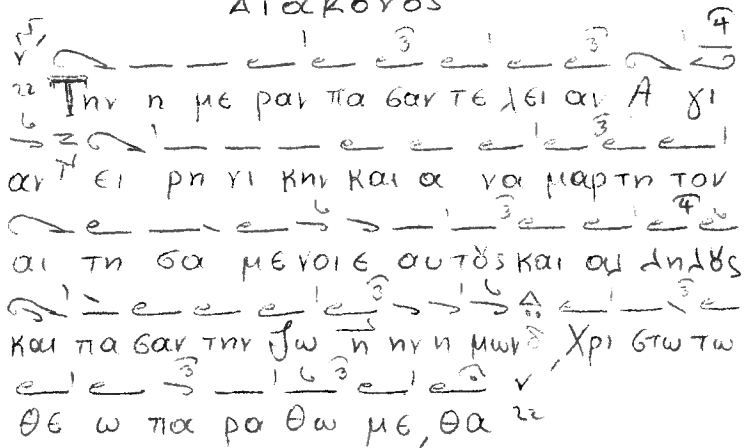 Διάκονος
Την η με ραν πα σαν τε λει αν Α γι
αν ει ρη νι κην και α να μαρτη τον
αι τη σα με νοι ε αυ τȣς και αλ ληλȣς
και πα σαν την ζω η ην η μων, Χρι στω τω
Θε ω πα ρα θω με, θα